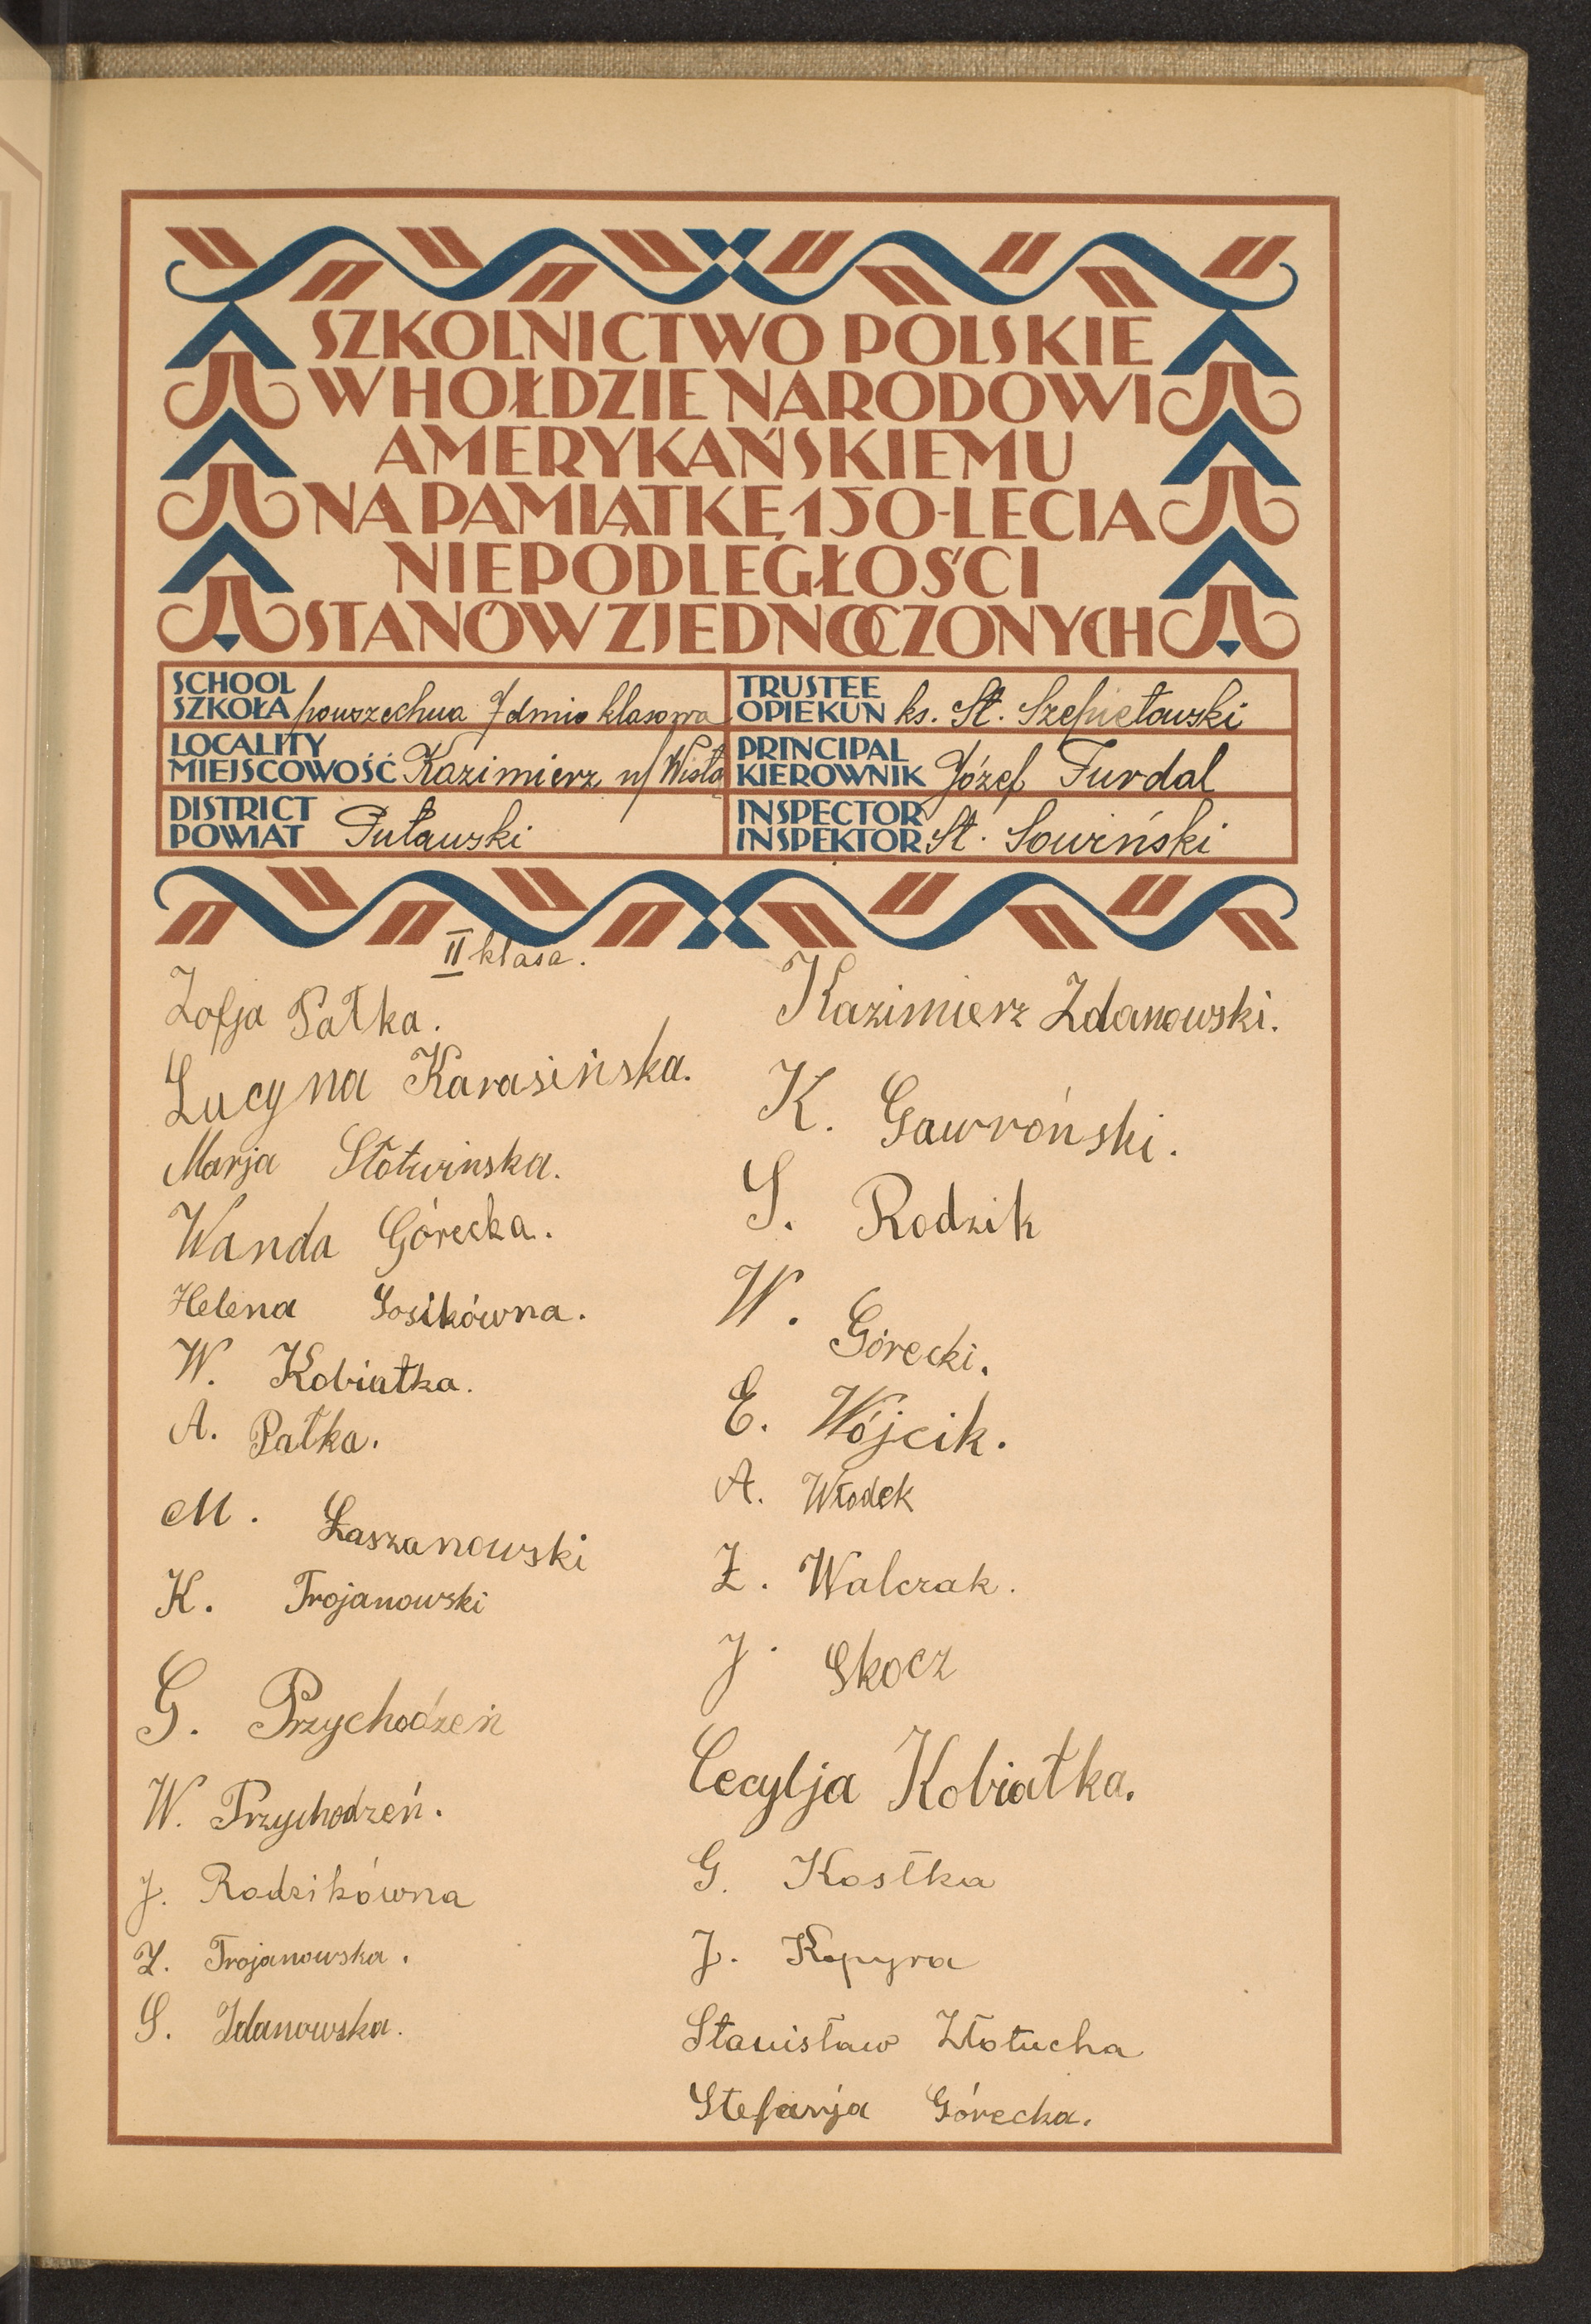 SZKOLNICTWO POLSKIE
W HOŁDZIE NARODOWI
AMERYKAŃSKIEMU
NA PAMIĄTKĘ 150-LECIA
NIEPODLEGŁOŚCI
STANÓW ZJEDNOCZONYCH
SCHOOL
SZKOŁA powszechna 7dmio klasowa
TRUSTEE
OPIEKUN ks. St. Szepietowski
LOCALITY
MIEJSCOWOŚĆ Kazimierz n/Wisłą
PRINCIPAL
KIEROWNIK Józef Furdal
DISTRICT
POWIAT Puławski
INSPECTOR
INSPEKTOR St. Sowiński
II klasa.
Zofja Pałka.
Lucyna Karasińska.
Marja Słotwinska.
Wanda Górecka.
Helena Sosikówna.
W. Kobiałka.
A. Pałka.
M. Łaszanowski
K. Trojanowski
G. Przychodzeń
W. Przychodzeń.
J. Rodzikówna
Z. Trojanowska.
S. Zdanowska.
Kazimierz Zdanowski.
K. Gawroński.
S. Rodzik
W. Górecki.
E. Wójcik.
A. Włodek
Z. Walczak.
J. Skocz
Cecylja Kobiałka.
G. Kostka
J. Kopyra
Stanisław Złotucha
Stefanja Górecka.